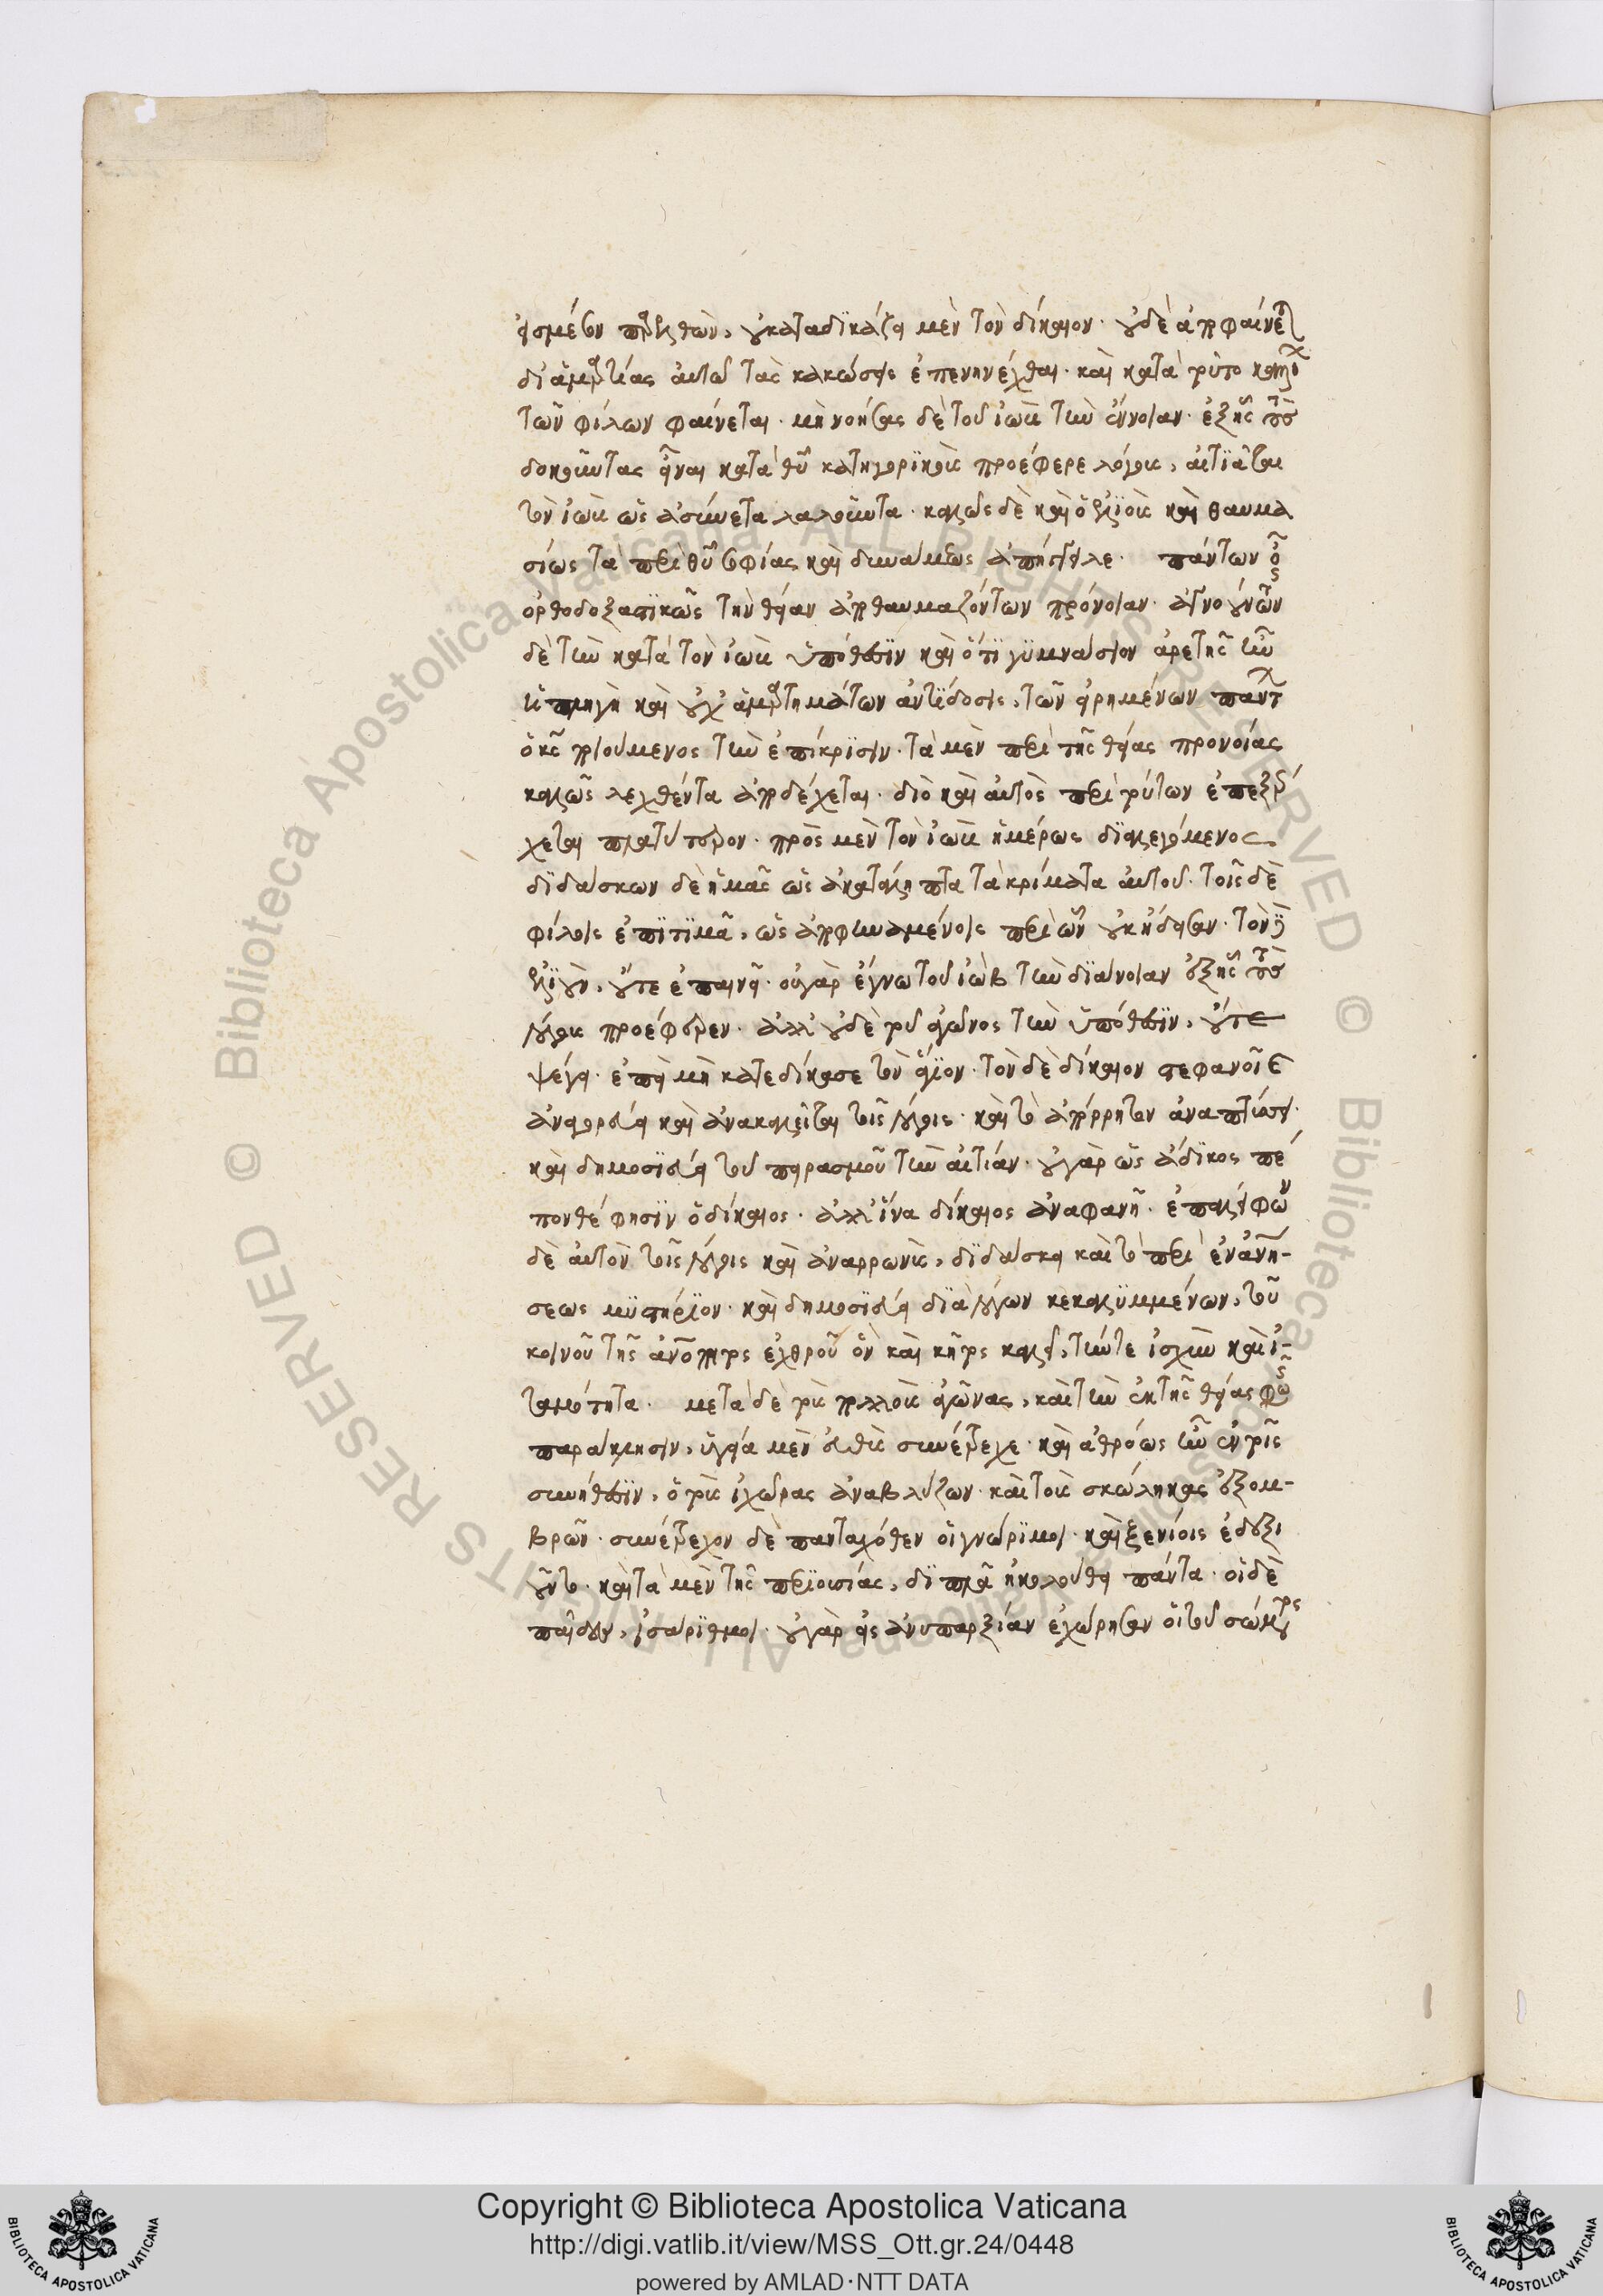 εἰς μέσον παρελθὼν, οὐ καταδικάζει μὲν τὸν δίκαιον· οὐδὲ ἀποφαίνεται
δι' ἁμαρτίας αὐτῶ τὰς κακώσεις ἐπενηνέχθαι· καὶ κατὰ τοῦτο
τῶν φίλων φαίνεται· μὴ νοήσας δὲ τοῦ ἰὼβ τὴν ἔννοιαν· ἐξ ἧς τοὺς
δοκοῦντας εἶναι κατὰ θεοῦ κατηγορικοὺς προέφερε λόγους, αἰτιᾶται
τὸν ἰὼβ ὡς ἀσύνετα λαλοῦντα· καλῶς δὲ καὶ ὁ ἐλιοὺς καὶ θαυμα
σίως τὰ περὶ θεοῦ σοφίας καὶ δυνάμεως ἀπήγγειλε· πάντων
ὀρθοδοξαστικῶς τὴν θείαν ἀποθαυμαζόντων πρόνοιαν· ἀγνοούντων
δὲ τὴν κατὰ τὸν ἰὼβ ὑπόθεσιν καὶ ὅτι γυμνάσιον ἀρετῆς ἦν
ἡ πληγὴ καὶ οὐχ ἁμαρτημάτων ἀντίδοσις, τῶν εἰρημένων παντ
ὁ κύριος ποιούμενος τὴν ἐπίκρισιν· τὰ μὲν περὶ τῆς θείας προνοίας
καλῶς λεχθέντα ἀποδέχεται· διὸ καὶ αὐτὸς περὶ τούτων ἐπεξέρ
χεται πλατύτερον· πρὸς μὲν τὸν ἰὼβ ἡμέρως διαλεγόμενος
διδάσκων δὲ ἡμᾶς ὡς ἀκατάληπτα τὰ κρίματα αὐτοῦ· τοῖς δὲ
φίλοις ἐπιτιμᾶ, ὡς ἀποφηναμένοις περὶ ὧν οὐκ ᾔδεισαν· τὸν δὲ
ἐλιοὺν, οὔτε ἐπαινεῖ· οὐ γὰρ ἔγνω τοῦ ἰὼβ τὴν διάνοιαν ἐξ ἧς τοὺς
λόγους προέφερεν· ἀλλ' οὐδὲ τοῦ ἀγῶνος τὴν ὑπόθεσιν, οὔτε
ψέγει· ἐπεὶ μὴ κατεδίκασε τὸν ἅγιον· τὸν δὲ δίκαιον στεφανοῖ
ἀναγορεύει καὶ ἀνακαλεῖται τοῖς λόγοις· καὶ τὸ ἀπόρρητον ἀναπτύσσει·
καὶ δημοσιεύει τοῦ πειρασμοῦ τὴν αἰτίαν· οὐ γὰρ ὡς ἄδικος πέ
πονθέ φησιν ὁ δίκαιος· ἀλλ' ἵνα δίκαιος ἀναφανῆ· ἐπαλείφων
δὲ αὐτὸν τοῖς λόγοις καὶ ἀναρρωννὺς, διδάσκει καὶ τὸ περὶ ἐνανθρωπή-
σεως μυστήριον· καὶ δημοσιεύει διὰ λόγων κεκαλυμμένων, τοῦ
κοινοῦ τῆς ἀνθρωπότητος ἐχθροῦ ὃν καὶ κῆτος καλεῖ, τήν τε ἰσχὺν καὶ ἰ-
ταμότητα· μετὰ δὲ τοὺς πολλοὺς ἀγῶνας, καὶ τὴν ἐκ τῆς θείας φωνῆς
παράκλησιν, ὑγεία μὲν εὐθὺς συνέτρεχε· καὶ ἀθρόως ἦν ἐν τοῖς
συνήθεσιν, ὁ τοὺς ἰχῶρας ἀναβλύζων· καὶ τοὺς σκώληκας ἐξομ-
βρῶν· συνέτρεχον δὲ πανταχόθεν οἱ γνώριμοι· καὶ ξενίοις ἐδεξι
οῦντο· καὶ τὰ μὲν τῆς περιουσίας, διπλᾶ ἠκολούθει πάντα· οἱ δὲ
παῖδες, ἰσάριθμοι· οὐ γὰρ εἰς ἀνυπαρξίαν ἐχώρησαν οἱ τοῦ σώματος
Copyright © Biblioteca Apostolica Vaticana
http://digi.vatlib.it/view/MSS_Ott.gr.24/0448
powered by AMLAD·NTT DATA